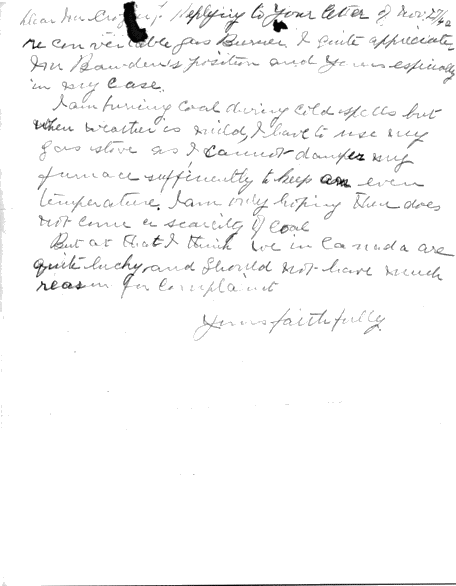 Dear Mr. Replying to your letter of Nov. 27/42
re convertible gas Burner. I quite appreciate
Mr Bawden's position and yours espicially
in my case.
I am furing coal during cold spells but
when weather is mild, I have to use my
gas stove as I cannot damper my
furnace suffiently to keep an even
temperature. I am only hoping there does
not come a scarcity of coal
But at that I think we in Canada are
quite lucky, and should not have much
reason for complaint
Yours faithfully